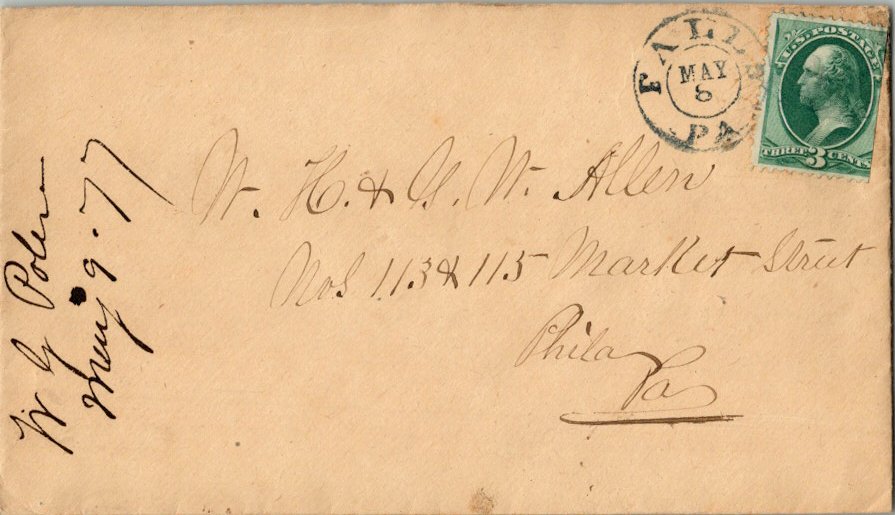 FALLS
MAY
8
PA
U.S. POSTAGE
THREE 3 CENTS
W. H. & G. W. Allen
Nos 113 & 115 Market Street
Phila
Pa
W G
May 9. 77